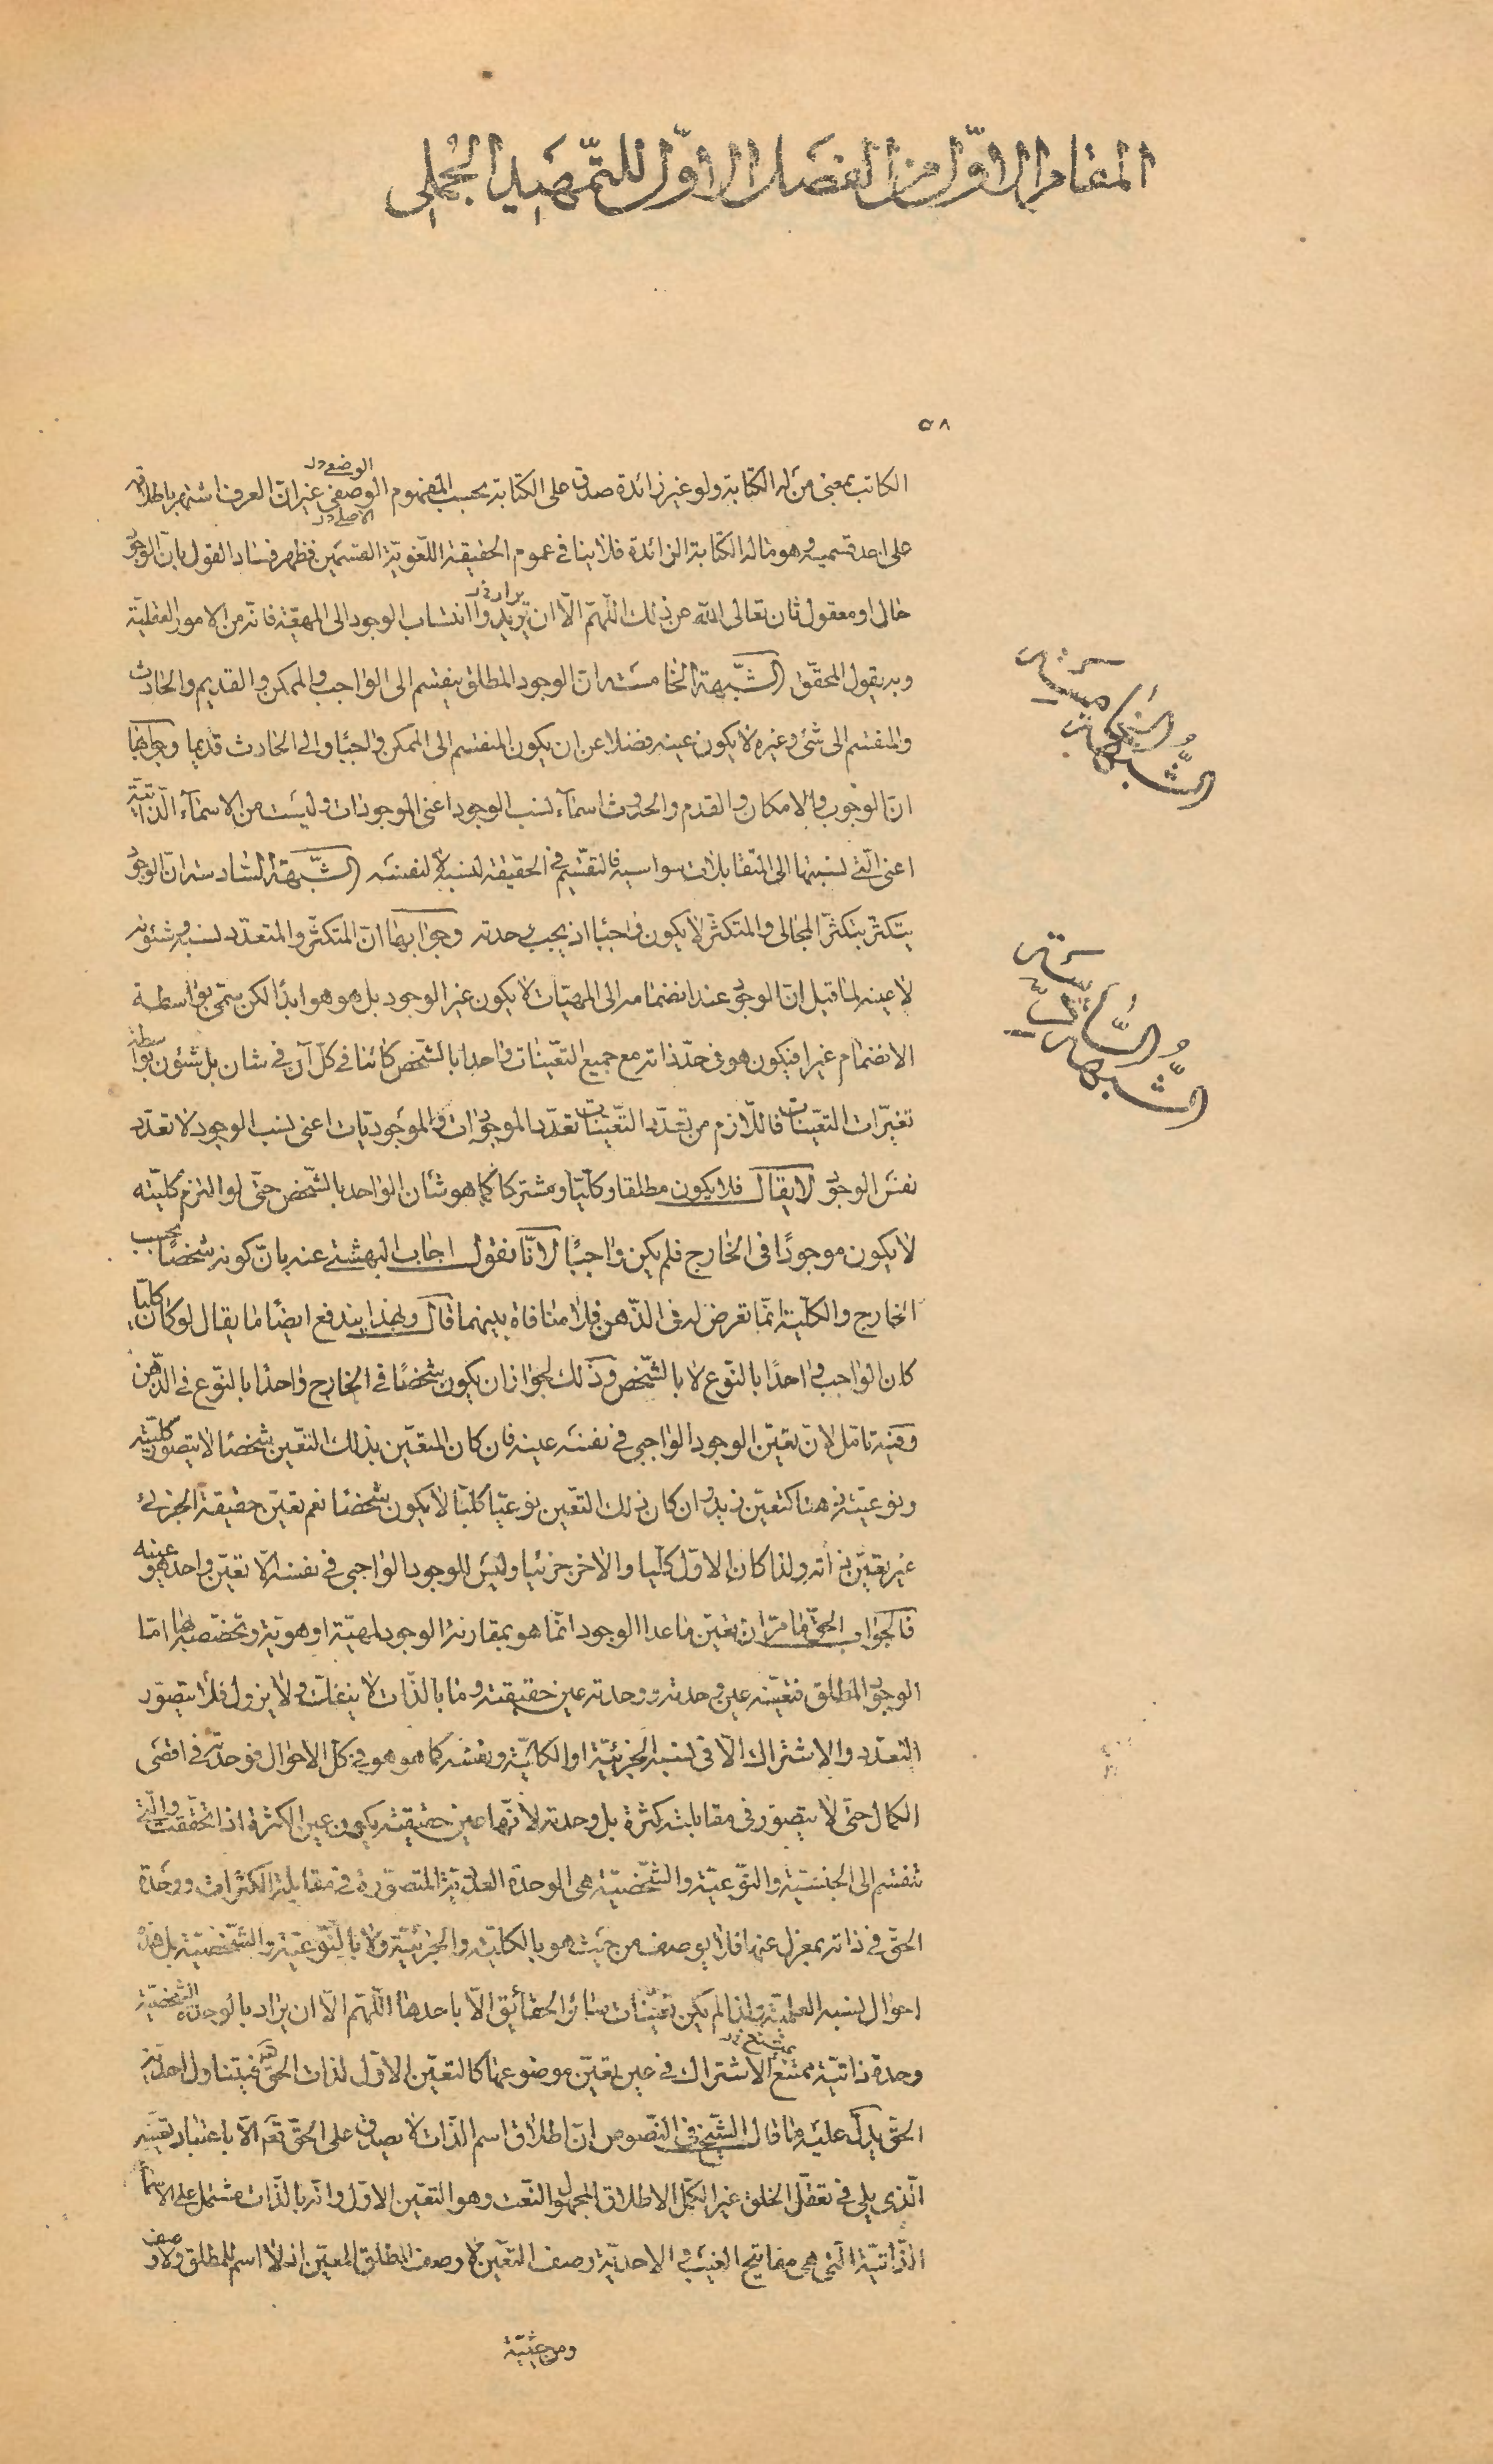 المقام الاوّل من الفصل الاوّل للتّمهيد الجُملي
٥٨
الوضعى خ ل
الكاتب بمعنى من له الكتابة ولو غير زائدة صدق على الكتابة بحسب المفهوم الوصفى غير انّ العرف اشتهر باطلاقه
الاصلى خ ل
على احد قسميه وهو ما له الكتابة الزائدة فلا ينافى عموم الحقيقة اللّغويّة القسمين فظهر فساد القول بانّ الوجود
يراد خ ل
حال او معقول ثان تعالى الله عن ذلك اللّهمّ الّا ان يريدوا انتساب الوجود الى المهيّة فانّه من الامور العقليّة
وبه يقول المحقّق الشّبهة الخامسة انّ الوجود المطلق ينقسم الى الواجب والممكن والقديم والحادث
الشُّبهة الخامسة
والمنقسم الى شئ وغيره لا يكون عينه فضلا عن ان يكون المنقسم الى الممكن واجبًا والى الحادث قديما وجوابها
انّ الوجوب والامكان والقدم والحدوث اسمآء لنسب الوجود اعنى الموجودات وليست من الاسمآء الذّاتيّة
اعنى الّتى نسبتها الى المتقابلات سواسية فالتقسّيم فى الحقيقة لنسبه لا لنفسه الشّبهة السّادسة انّ الوجود
يتكثّر بتكثّر المجالى والمتكثّر لا يكون واجبًا اذ يجب وحدته وجوابها انّ المتكثّر والمتعدّد نسبه وشئونه
الشُّبهة السّادسة
لا عينه لما قيل انّ الوجود عند انضمامه الى المهيّات لا يكون غير الوجود بل هو هو ابدًا لكن يسمّى بواسطة
الانضمام غيرا فيكون هو فى حدّ ذاته مع جميع التعّينات واحدا بالشّخص كائنا فى كلّ آن فى شان بل شئون بواسطة
تغيّرات التعّينات فاللّازم من تعدّد التّعيّنات تعدّد الموجودات والموجوديّات اعنى نسب الوجود لا تعدّد
نفس الوجود لا يقال فلا يكون مطلقا وكليّا ومشتركا كما هو شأن الواحد بالشّخص حتّى لو التزم كليّته
لا يكون موجودًا فى الخارج فلم يكن واجبًا لانّا نقول اجاب البهشتى عنه بانّ كونه شخصًا بحسب
الخارج والكلّية انّما تعرض له فى الذّهن فلا منافاة بينهما قال وبهذا يندفع ايضًا ما يقال لو كان كليّا
كان الواجب واحدًا بالنّوع لا بالشّخص وذلك لجواز ان يكون شخصًا فى الخارج واحدًا بالنّوع فى الذّهن
وفيه تامّل لانّ تعيّن الوجود الواجبى فى نفسه عينه فان كان المتعّين بذلك التعّين شخصًا لا يتصوّر كليّته
ونوعيّته ذهنا كتعيّن زيد وان كان ذلك التعّين نوعيّا كليّا لا يكون شخصًا نعم تعيّن حقيقة الجزئى
غير تعيّن ذاته ولذا كان الاوّل كليّا والاخر جزئيا وليس للوجود الواجبى فى نفسه الّا تعيّن واحد هو عينه
فالجواب الحقّ ما مرّ انّ تعيّن ما عدا الوجود انّما هو بمقارنة الوجود لمهيّة او هويّة وتخصّصه بها امّا
الوجود المطلق فتعيّنه عين وحدته ووحدته عين حقيقته وما بالذّات لا ينفكّ ولا يزول فلا يتصوّر
التعدّد والاشتراك الّا فى نسبه الجزئيّة او الكليّة ونفسه كما هو هو فى كلّ الاحوال فوحدته فى اقصى
الكمال حتّى لا يتصوّر فى مقابلته كثرة بل وحدته لانّها عين حقيقته يكون عين الكثرة اذا تحقّقت والّتى
تنقسم الى الجنسيّة والنّوعيّة والشّخصيّة هى الوحدة العدديّة المتصوّرة فى مقابلة الكثرات ووحدة
الحقّ فى ذاته بمعزل عنها فلا يوصف من حيث هو بالكليّة والجزئيّة ولا بالنّوعيّة والشّخصيّة بل هذه
احوال نسبه العلميّة ولذا لم يكن تعيّنات سائر الحقائق الّا باحدها اللّهمّ الّا ان يراد بالوحدة الشّخصيّة
وحدة ذاتيّة ممتنع الاشتراك فى عين تعيّن موضوعها كالتعّين الاوّل لذات الحقّ فيتناول احديّة
الحقّ يدلّ عليه ما قال الشّيخ فى النّصوص انّ اطلاق اسم الذّات لا يصدق على الحقّ تعم الّا باعتبار تعيّنه
الّذى يلى فى تعقّل الخلق غير الكمّل الاطلاق المجهول النّعت وهو التعّين الاوّل وانّه بالذّات مشتمل على الاسمآء
الذّاتيّة الّتى هى مفاتيح الغيب والاحديّة وصف التعّين لا وصف المطلق المعيّن اذ لا اسم للمطلق ولا وصف
ومن حيثيّة